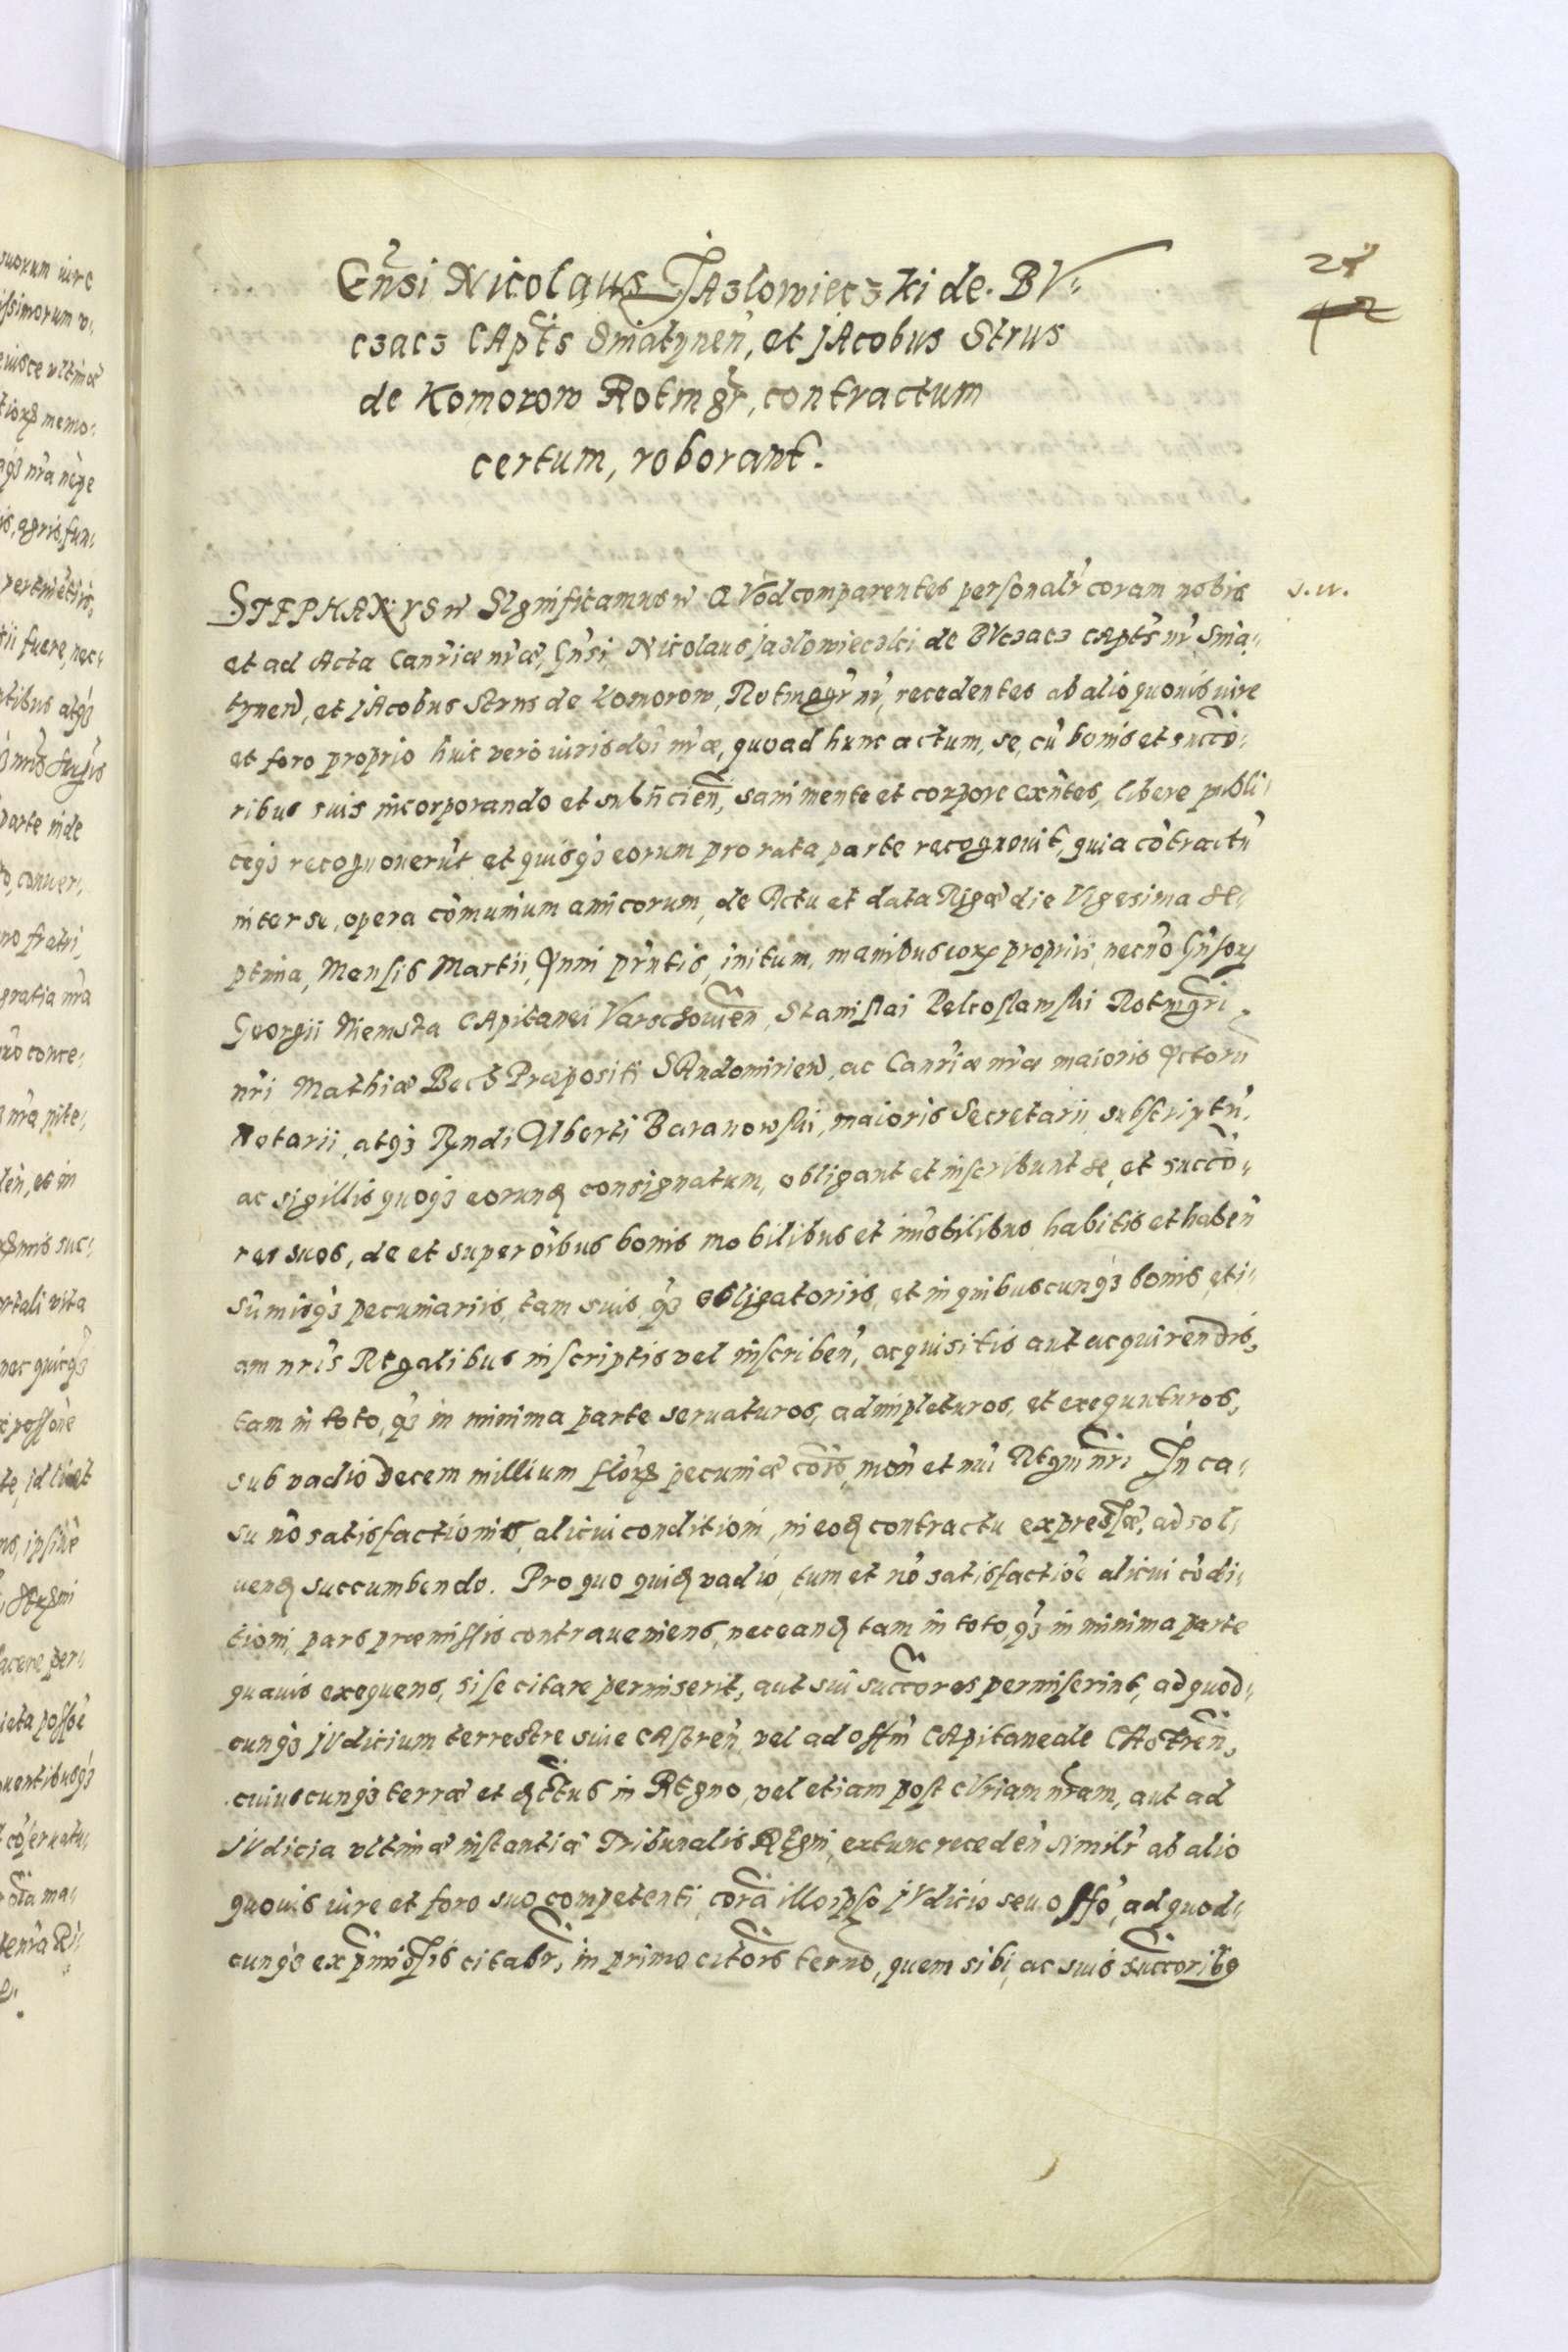 25
42
Gn̄si Nicolaus JAzlowieczki de BV-
czacz CApt̃s Sniatynen̄, et JAcobus Strus
de Komorow Rotmgr̃, contractum
certum, roborant.
STEPHANVS etc̃ Significamus etc̃ QVod comparentes personalr̃ coram nobis
et ad Acta Canrĩæ nræ̃, Gn̄si Nicolaus Jazlowieczki de BVczacz CApt̃s nr̃ Snia-
tynen̄, et JAcobus Strus de Komorow, Rotmgr̃ nr̃, recedentes ab alio quouis iure
et foro proprio huic vero iurisdoĩ nræ̃, quoad hunc actum, se, cũ bonis et succõ-
ribus suis incorporando et subiicien̄, sani mente et corpore exñtes, libere publi-
ceqз recognouerũt et quisqз eorum pro rata parte recognouit, quia cõtractũ
inter se, opera cõmunium amicorum, de Actu et data Rigæ die Vigesima se-
ptima, Mensis Martii, Anni prñtis, initum, manibus eoꝝ propriis, necnõ Gñsoꝝ
Georgii Niemsta CApitanei Varschouien̄, Stanislai Pelcoslawski Rotmgri
nr̃i Mathiæ Bech Præpositi SAndomirien̄, ac Canrĩæ nræ̃ maioris Actorũ
Notarii, atqз Rṽndi Alberti Baranowski, maioris Secretarii, subscriptũ,
ac sigillis quoqз eorunꝺ consignatum, obligant et inscribunt se, et succõ-
res suos, de et super õibus bonis mobilibus et im̃obilibus habitis et haben̄
sũmisqз pecuniariis, tam suis, qз̃ obligatoriis, et in quibuscunqз bonis, eti-
am nrĩs Regalibus inscriptis vel inscriben̄, acquisitis aut acquirendis,
tam in toto, qз̃ in minima parte seruaturos, adimpleturos, et exequuturos,
sub vadio Decem millium flõrꝝ pecuniæ cõis, mon̄ et nũi Regni nr̃i. In ca-
su nõ satisfactionis, alicui conditioni, in eoꝺ contractu expressæ, ad sol-
uenꝺ succumbendo. Pro quo quiꝺ vadio, tum et nõ satisfactiõe alicui cõdi-
tioni, pars præmissis contraueniens, nec eanꝺ tam in toto, qз̃ in minima parte
quauis exequens, si se citare permiserit, aut sui succõres permiserint, ad quod-
cunqз JVdicium terrestre siue CAstren̄, vel ad offm̃ CApitaneale CAstren̄,
cuiuscunqз terræ et ꝺctus in Regno, vel etiam post CVriam nrãm, aut ad
JVdicia vltimæ instantiæ Tribunalis Regni, extunc receden̄ similr̃ ab alio
quouis iure et foro suo competenti, corã illo ipso JVdicio seu offõ, ad quod-
cunqз ex pr̃missis citabr̃, in primo citõis terno, quem sibi, ac suis succorib9